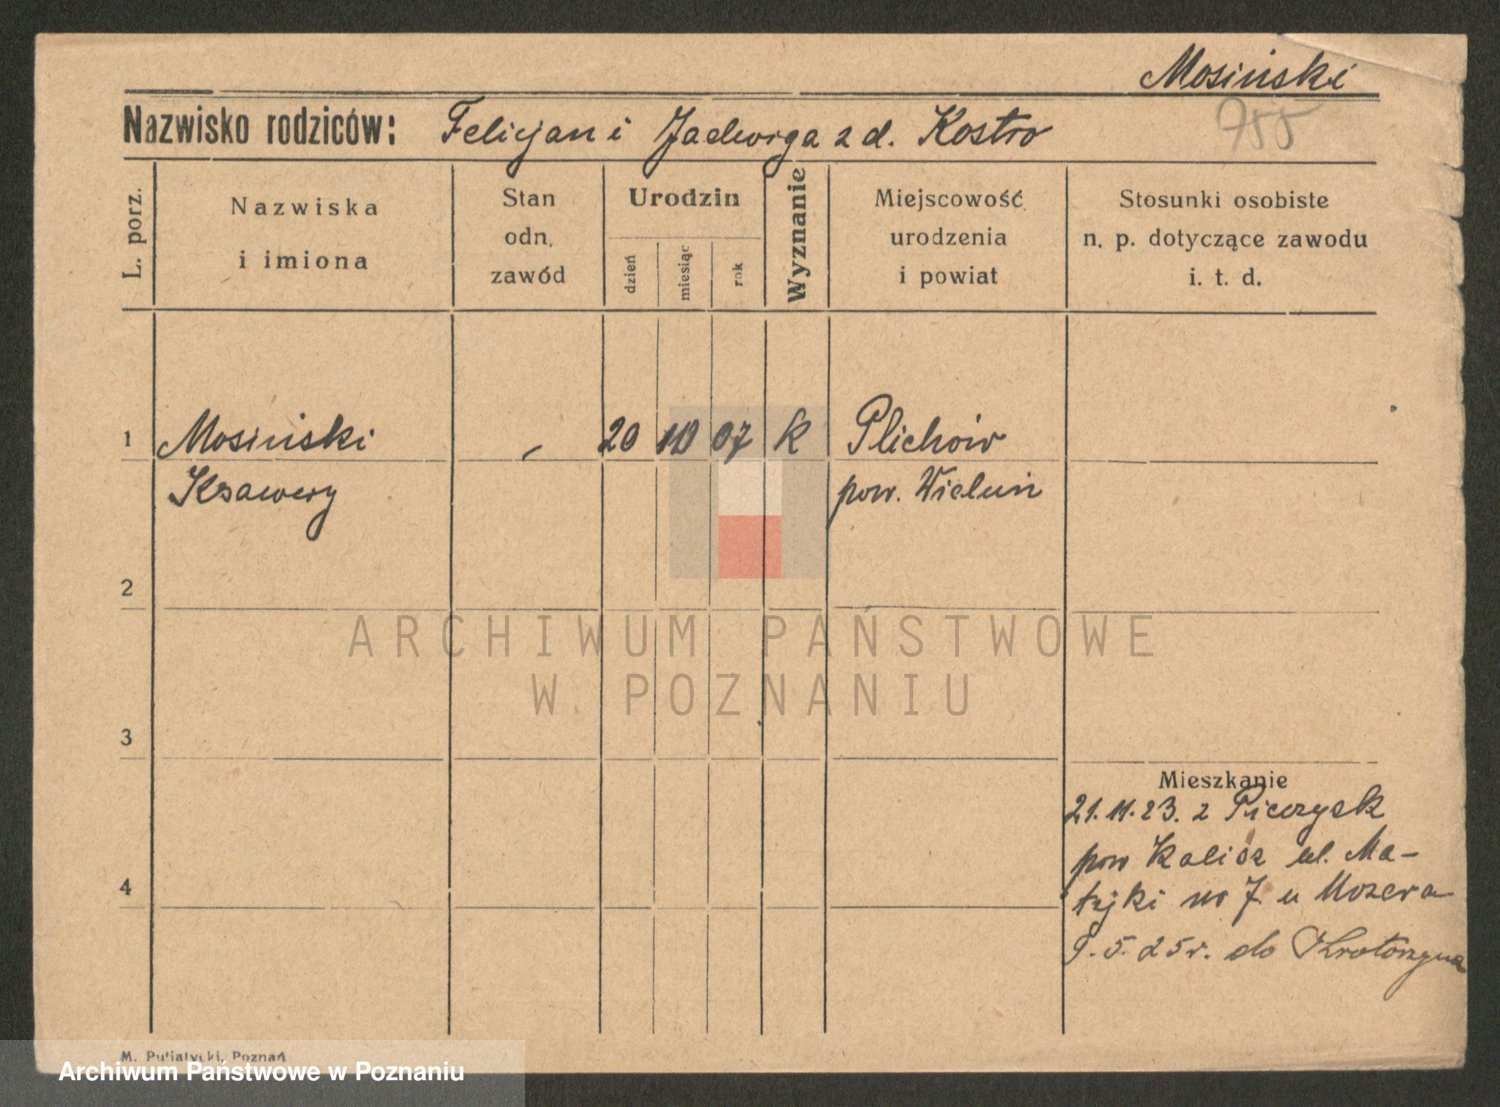 Mosiński
755
Nazwisko rodziców: Felicjan i Jadwiga z d. Kostro
L. porz.
Nazwiska
i imiona
Stan
odn.
zawód
Urodzin
dzień
miesiąc
rok
Wyznanie
Miejscowość
urodzenia
i powiat
Stosunki osobiste
n. p. dotyczące zawodu
i. t. d.
1 Mosiński - 20 10 07 k Plichów
Ksawery pow. Wieluń
2
ARCHIWUM PAŃSTWOWE
W POZNANIU
3
Mieszkanie
21.11.23. z
pow Kalisz ul. Ma-
4
tejki no 7 u Mozera
9.5.25r. do Krotoszyna
M. Putiatycki, Poznań
Archiwum Państwowe w Poznaniu